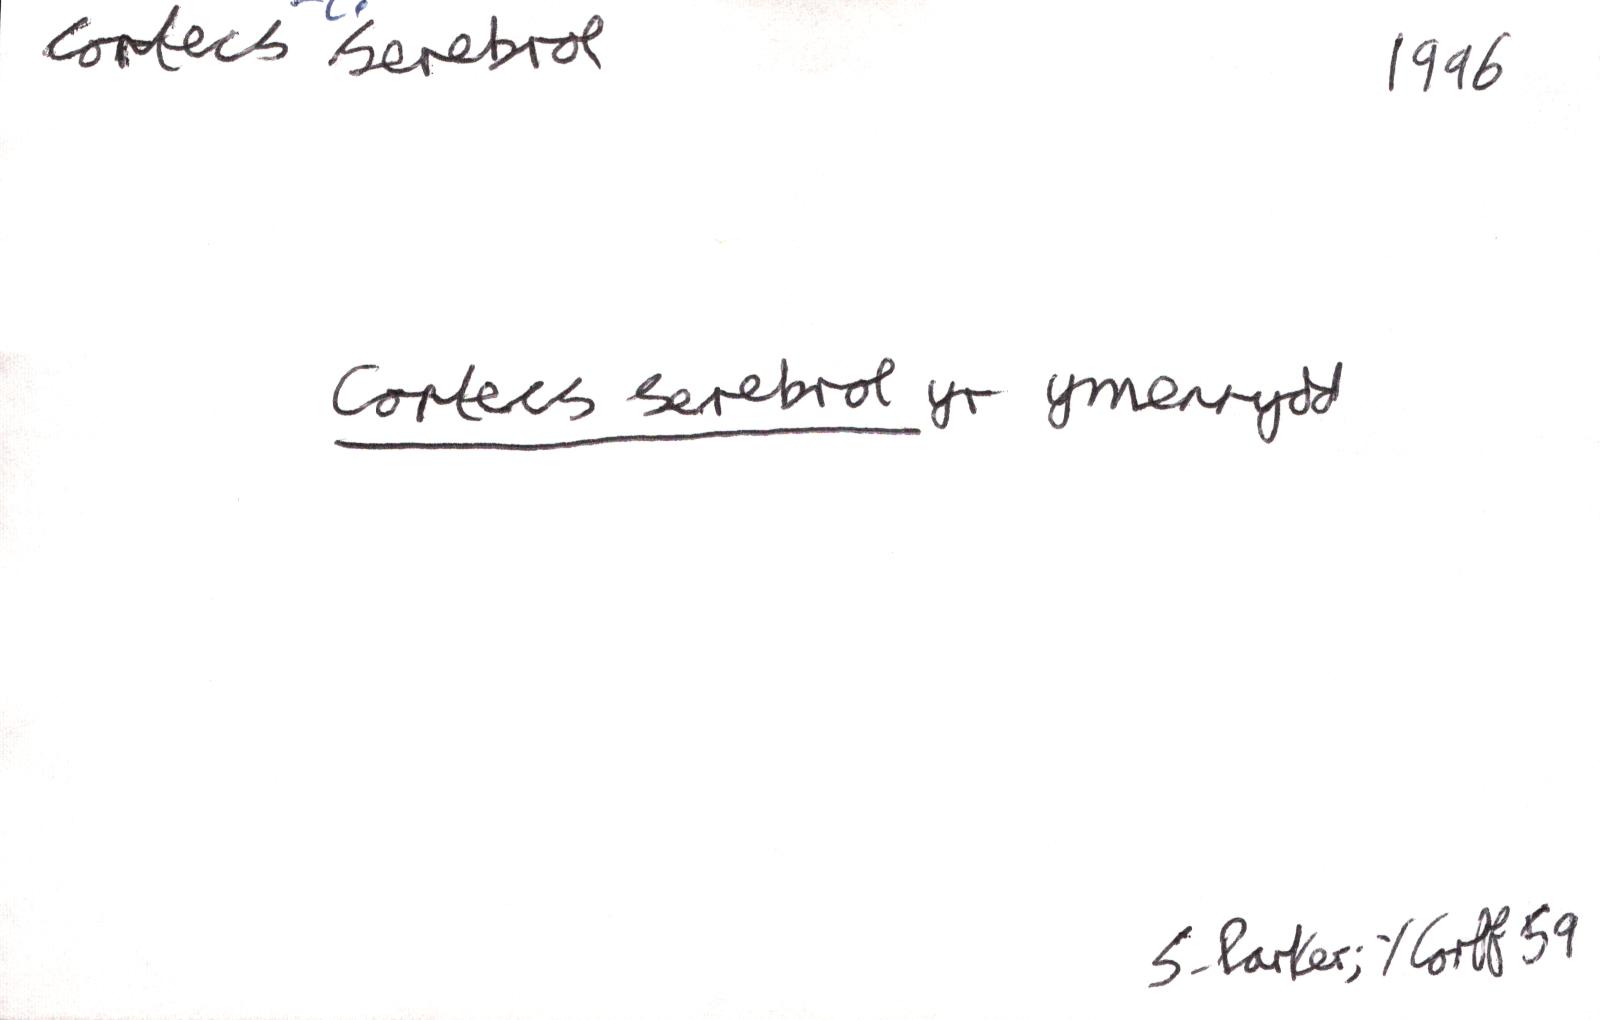 cortecs serebrol 1996
Cortecs serebrol yr ymennydd
S. Parker; Y Corff 59